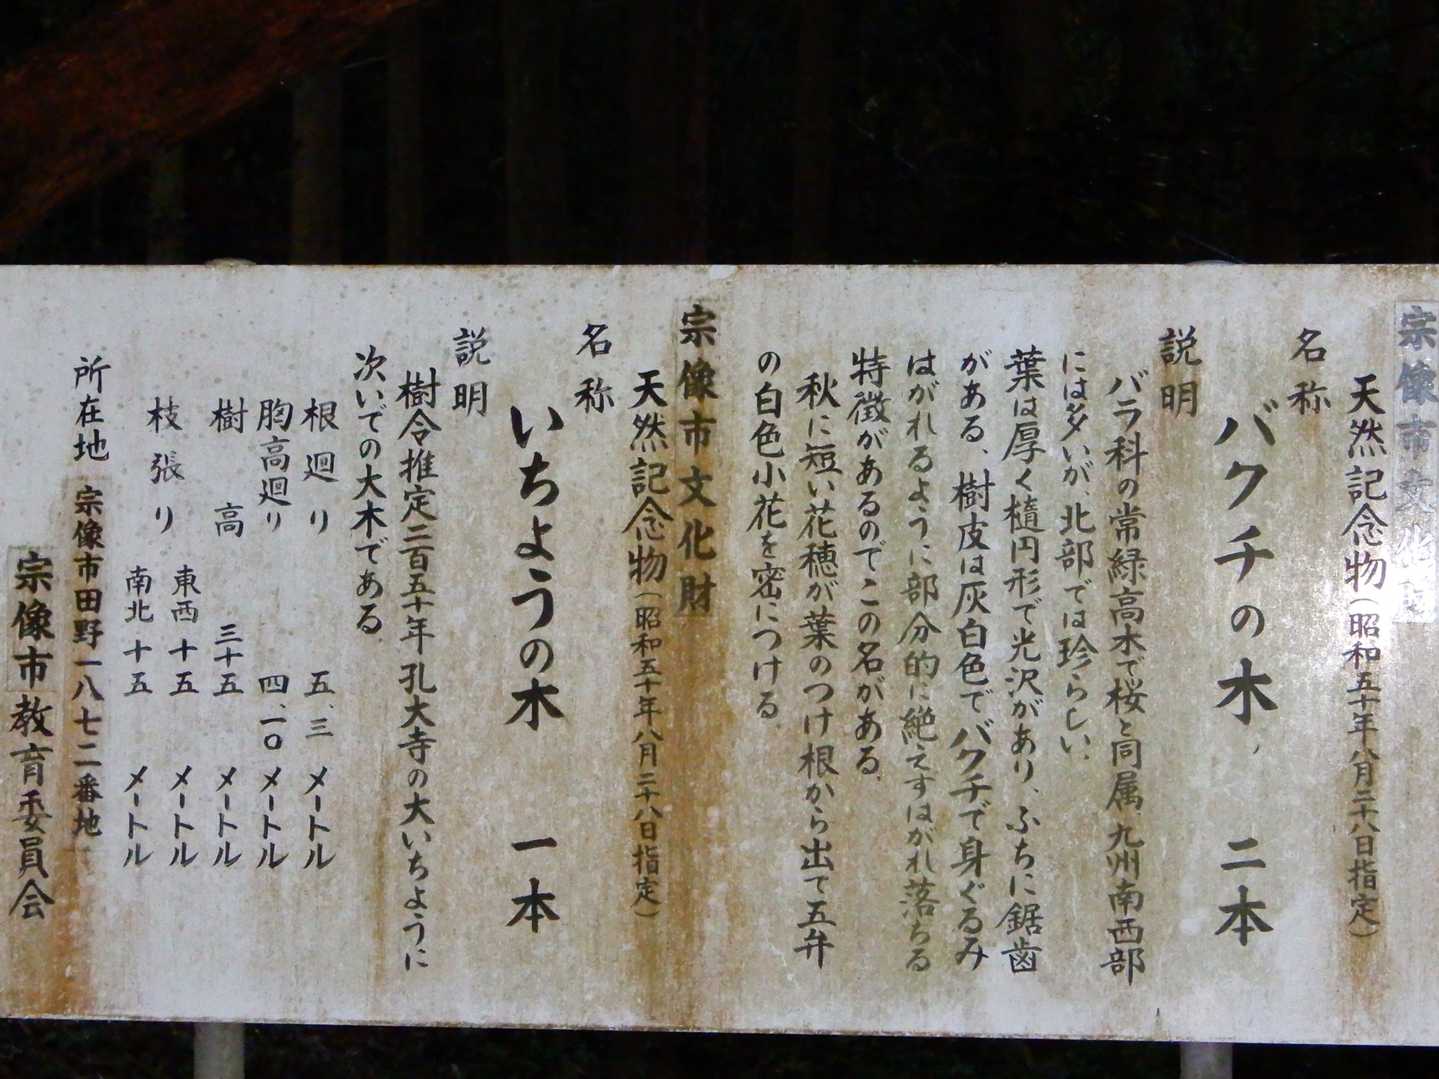 宗像市文化財
天然記念物(昭和五十年八月二十八日指定)
名称
バクチの木 二本
説明
バラ科の常緑高木で桜と同属、九州南西部
には多いが、北部では珍らしい。
葉は厚く橢円形で光沢があり、ふちに鋸歯
がある、樹皮は灰白色でバクチで身ぐるみ
はがれるように部分的に絶えずはがれ落ちる
特徴があるのでこの名がある。
秋に短い花穂が葉のつけ根から出て五弁
の白色小花を密につける。
宗像市文化財
天然記念物(昭和五十年八月二十八日指定)
名称
いちようの木 一本
説明
樹令推定二百五十年孔大寺の大いちように
次いでの大木である。
根廻り 五、三 メートル
胸高廻り 四、一〇 メートル
樹高 三十五 メートル
枝張り 東西 十五 メートル
南北 十五 メートル
所在地 宗像市田野一八七二番地
宗像市教育委員会